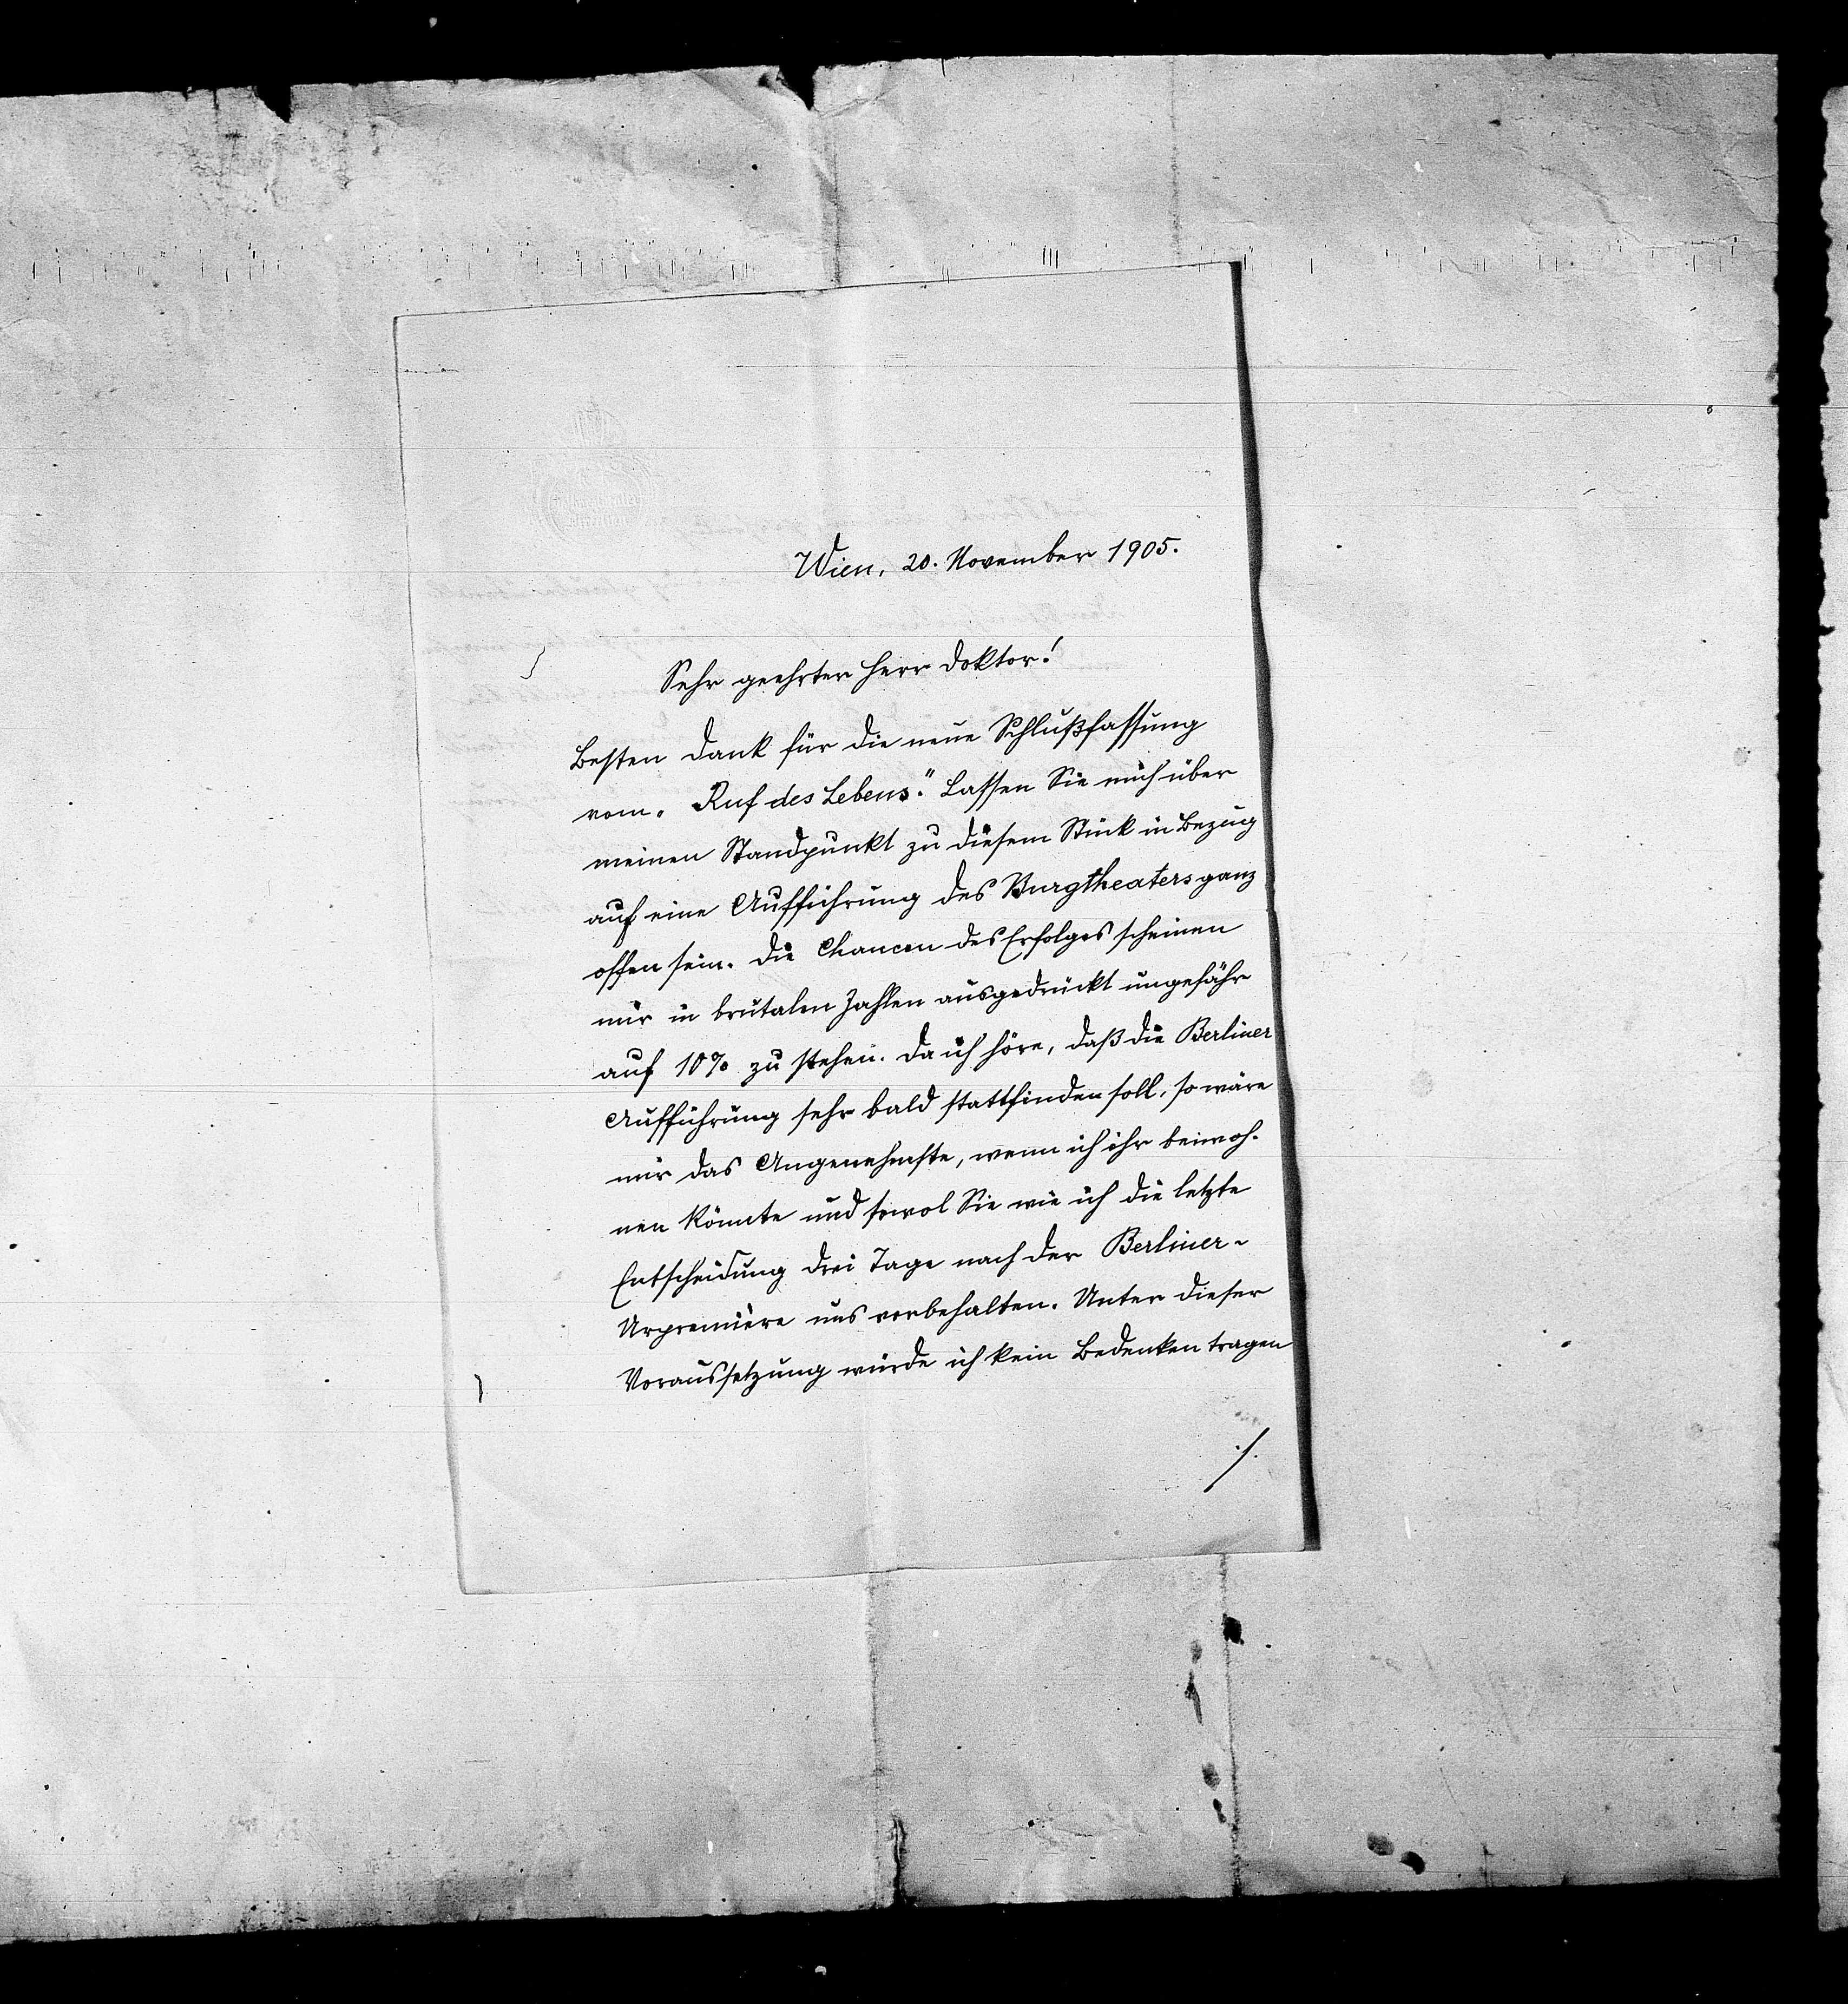 Wien, 20. November 1905.
Sehr geehrter Herr Doktor!
Besten Dank für die neue Schlußfassung
vom „Ruf des Lebens." Lassen Sie mich über
meinen Standpunkt zu diesem Stück in Bezug
auf eine Aufführung des Burgtheaters ganz
offen sein. Die Chancen des Erfolges scheinen
mir in brutalen Zahlen ausgedrückt ungefähr
auf 10% zu stehen. Da ich höre, daß die Berliner
Aufführung sehr bald stattfinden soll, so wäre
mir das Angenehmste, wenn ich ihr beiwoh-
nen könnte und sowol Sie wie ich die letzte
Entscheidung drei Tage nach der Berliner-
Urpremière uns vorbehalten. Unter dieser
Voraussetzung würde ich kein Bedenken tragen
./.